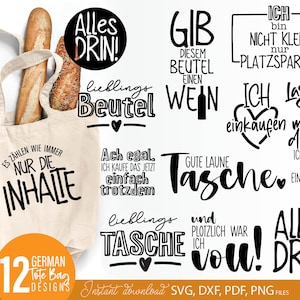 ALLES
DRIN!
GIB
DIESEM
BEUTEL
EINEN
WEIN
ICH
bin
NICHT KLEIN
nur
PLATZSPAR
lieblings
Beutel
ICH
einkaufen
ES ZÄHLEN WIE IMMER
NUR DIE
INHALTE
Ach egal,
ICH KAUFE DAS JETZT
einfach
trotzdem
GUTE LAUNE
Tasche
EIN
lieblings
TASCHE
und
PLÖTZLICH WAR
ich
voll!
ALL
DR
12
GERMAN
Tote Bag
DESIGNS
Instant download SVG, DXF, PDF, PNG FILES